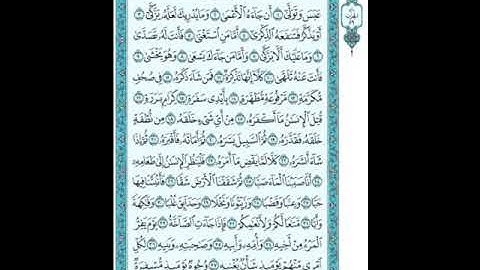 عَبَسَ وَتَوَلَّىٰٓ ١ أَن جَآءَهُ ٱلْأَعْمَىٰ ٢ وَمَا يُدْرِيكَ لَعَلَّهُۥ يَزَّكَّىٰٓ ٣
أَوْ يَذَّكَّرُ فَتَنفَعَهُ ٱلذِّكْرَىٰٓ ٤ أَمَّا مَنِ ٱسْتَغْنَىٰ ٥ فَأَنتَ لَهُۥ تَصَدَّىٰ
٦ وَمَا عَلَيْكَ أَلَّا يَزَّكَّىٰ ٧ وَأَمَّا مَن جَآءَكَ يَسْعَىٰ ٨ وَهُوَ يَخْشَىٰ
٩ فَأَنتَ عَنْهُ تَلَهَّىٰ ١٠ كَلَّآ إِنَّهَا تَذْكِرَةٌ ١١ فَمَن شَآءَ ذَكَرَهُۥ ١٢ فِى صُحُفٍ
مُّكَرَّمَةٍ ١٣ مَّرْفُوعَةٍ مُّطَهَّرَةٍۭ ١٤ بِأَيْدِى سَفَرَةٍ ١٥ كِرَامٍۭ بَرَرَةٍ ١٦
قُتِلَ ٱلْإِنسَٰنُ مَآ أَكْفَرَهُۥ ١٧ مِنْ أَىِّ شَىْءٍ خَلَقَهُۥ ١٨ مِن نُّطْفَةٍ
خَلَقَهُۥ فَقَدَّرَهُۥ ١٩ ثُمَّ ٱلسَّبِيلَ يَسَّرَهُۥ ٢٠ ثُمَّ أَمَاتَهُۥ فَأَقْبَرَهُۥ ٢١ ثُمَّ إِذَا
شَآءَ أَنشَرَهُۥ ٢٢ كَلَّا لَمَّا يَقْضِ مَآ أَمَرَهُۥ ٢٣ فَلْيَنظُرِ ٱلْإِنسَٰنُ إِلَىٰ طَعَامِهِۦٓ
٢٤ أَنَّا صَبَبْنَا ٱلْمَآءَ صَبًّا ٢٥ ثُمَّ شَقَقْنَا ٱلْأَرْضَ شَقًّا ٢٦ فَأَنۢبَتْنَا فِيهَا
حَبًّا ٢٧ وَعِنَبًا وَقَضْبًا ٢٨ وَزَيْتُونًا وَنَخْلًا ٢٩ وَحَدَآئِقَ غُلْبًا ٣٠ وَفَٰكِهَةً
وَأَبًّا ٣١ مَّتَٰعًا لَّكُمْ وَلِأَنْعَٰمِكُمْ ٣٢ فَإِذَا جَآءَتِ ٱلصَّآخَّةُ ٣٣ يَوْمَ يَفِرُّ
ٱلْمَرْءُ مِنْ أَخِيهِ ٣٤ وَأُمِّهِۦ وَأَبِيهِ ٣٥ وَصَٰحِبَتِهِۦ وَبَنِيهِ ٣٦ لِكُلِّ
ٱمْرِئٍ مِّنْهُمْ يَوْمَئِذٍ شَأْنٌ يُغْنِيهِ ٣٧ وُجُوهٌ يَوْمَئِذٍ مُّسْفِرَةٌ